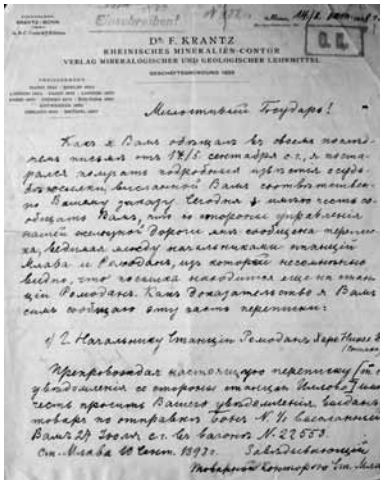 KRANTZ-BONN
Einschreiben!
Dr. F. KRANTZ
RHEINISCHES MINERALIEN-CONTOR
VERLAG MINERALOGISCHER UND GEOLOGISCHER LEHRMITTEL
Милостивый Государь!
Какъ я Вамъ обѣщалъ въ своемъ послѣд-
немъ письмѣ отъ 17/5 сентября с.г., я поста-
рался получать подробныя извѣстія о судь-
бѣ посылки, высланной Вамъ соотвѣтствен-
но Вашему заказу. Сегодня я имѣю честь со-
общать Вамъ, что со стороны управленія
нашей желѣзной дороги мнѣ сообщена перепис-
ка, ведимая между начальниками станцій
Млава и Ромоданъ, изъ которой несомнѣнно
видно, что посылка находится еще на стан-
ціи Ромоданъ. Какъ доказательство я Вамъ
симъ сообщаю эту часть переписки:
2. Начальнику Станціи Ромоданъ Харк. Никол.
Препровождая настоящую переписку
увѣдомленія со стороны станціи Илово имѣю
честь просить Вашего увѣдомленія, выданъ
товаръ по отправкѣ Боннъ N. высланный
Вамъ 27 Іюля с.г. въ вагонѣ N. 22553.
Ст. Млава 10 Сент. 189 г. Завѣдывающій
Товарной конторою Ст. Млава